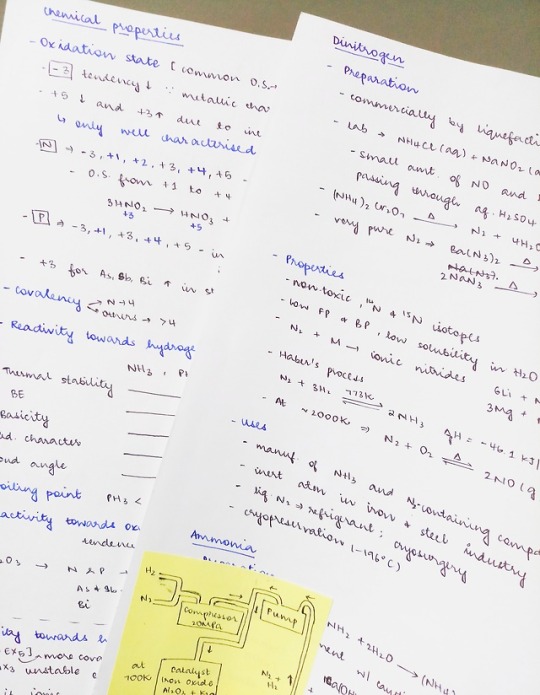 Chemical properties
- Oxidation state [ common O.S.→
- -3 tendency ↓ ∵ metallic cha
- +5 ↓ and +3↑ due to ine
↳ only well characterised
- N → -3, +1, +2, +3, +4, +5 -
- O.S. from +1 to +4
3HNO2 → HNO3 +
+3 +5
- P → -3, +1, +3, +4, +5 - in
- +3 for As, Sb, Bi ↑ in st
- covalency → N → 4
→ others → >4
- Reactivity towards hydroge
NH3, PH
Thermal stability
BE
Basicity
character
ond angle
oiling point PH3 <
activity towards ox
tendenc
2O3 → N & P →
As & Sb -
Bi
ity towards h
EX5] → more cova
X3 unstable
Dinitrogen
- Preparation
- commercially by liquefacti
- Lab → NH4Cl (aq) + NaNO2 (a
- small amt. of NO and
passing through aq. H2SO4
- (NH4)2Cr2O7 Δ→ N2 + 4H2O
- very pure N2 → Ba(N3)2 Δ→
2NaN3 Δ→
- Properties
- non-toxic, 14N & 15N isotopes
- low FP & BP, low solubility in H2O
- N2 + M → ionic nitrides 6Li + N
3Mg +
- Haber's process
N2 + 3H2 773K⇌ 2NH3 ΔH = -46.1 kJ/
- At ~2000K ⇒ N2 + O2 Δ⇌ 2NO (g
- Uses
- manuf. of NH3 and N-containing compo
- inert atm in iron & steel industry
- liq. N2 → refrigerant; cryosurgery
cryopreservation (-196°C)
Ammonia
H2
N2
Compressor
20MPa
Pump
at
700K
Catalyst
Iron oxide
Al2O3 + K2O
N2 +
H2
NH2 + 2H2O → (NH4)